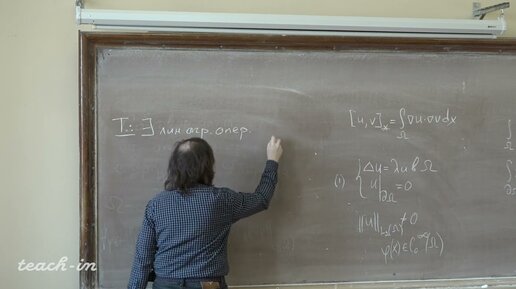 Т.: ∃ лин огр. опер.
[u,v]_* = ∫_Ω ∇u·∇v dx
(1) { Δu = λu в Ω
u|_∂Ω = 0
‖u‖_L₂(Ω) ≠ 0
φ(x) ∈ C₀^∞(Ω)
teach-in